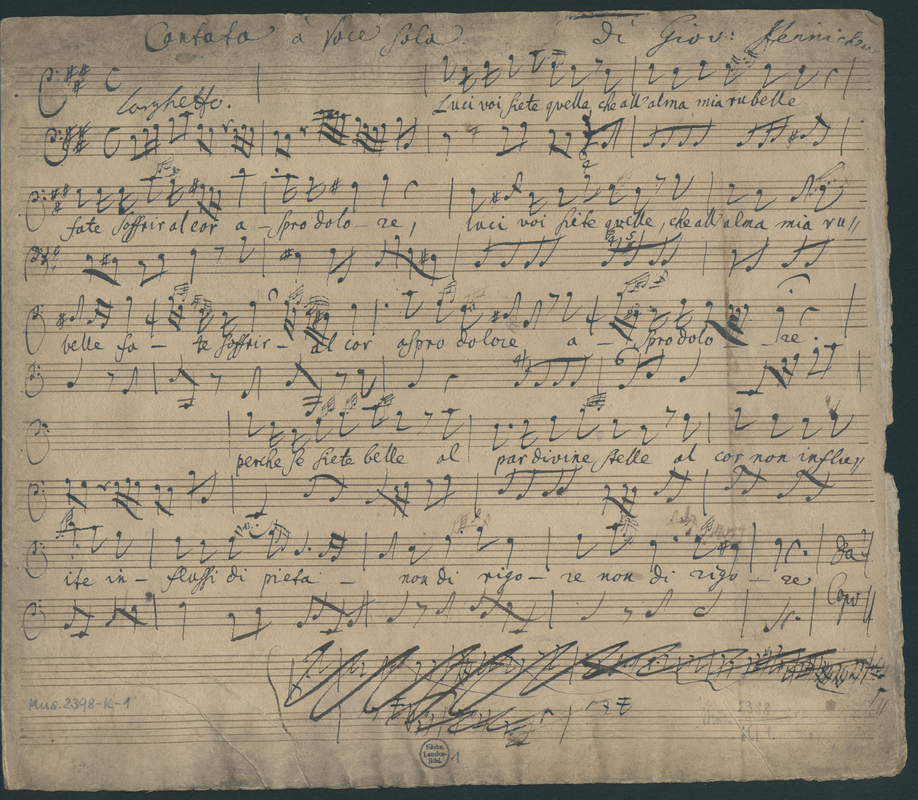 Cantata à Voce Sola di Giov:
Larghetto.
Luci voi siete quelle che all'alma mia rubelle
fate soffrir al cor a - spro dolo - re, luci voi siete quelle, che all'alma mia ru//
belle fa - te soffrir - al cor aspro dolore a - spro dolo - re.
perche se siete belle al par divine stelle al cor non influ//
ite in - flussi di pieta - non di rigo - re non di rigo - re
Da
Capo
Mus. 2398-K-1
Sächs.
Landes-
Bibl.
1